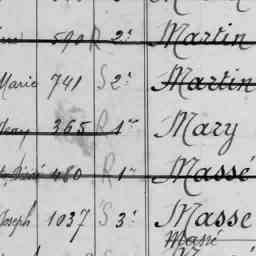 590 R 2e Martin
Marie 741 S 2e Martin
Jean 365 R 1er Mary
480 R 1er Massé
Joseph 1037 S 3e Masse
Massé